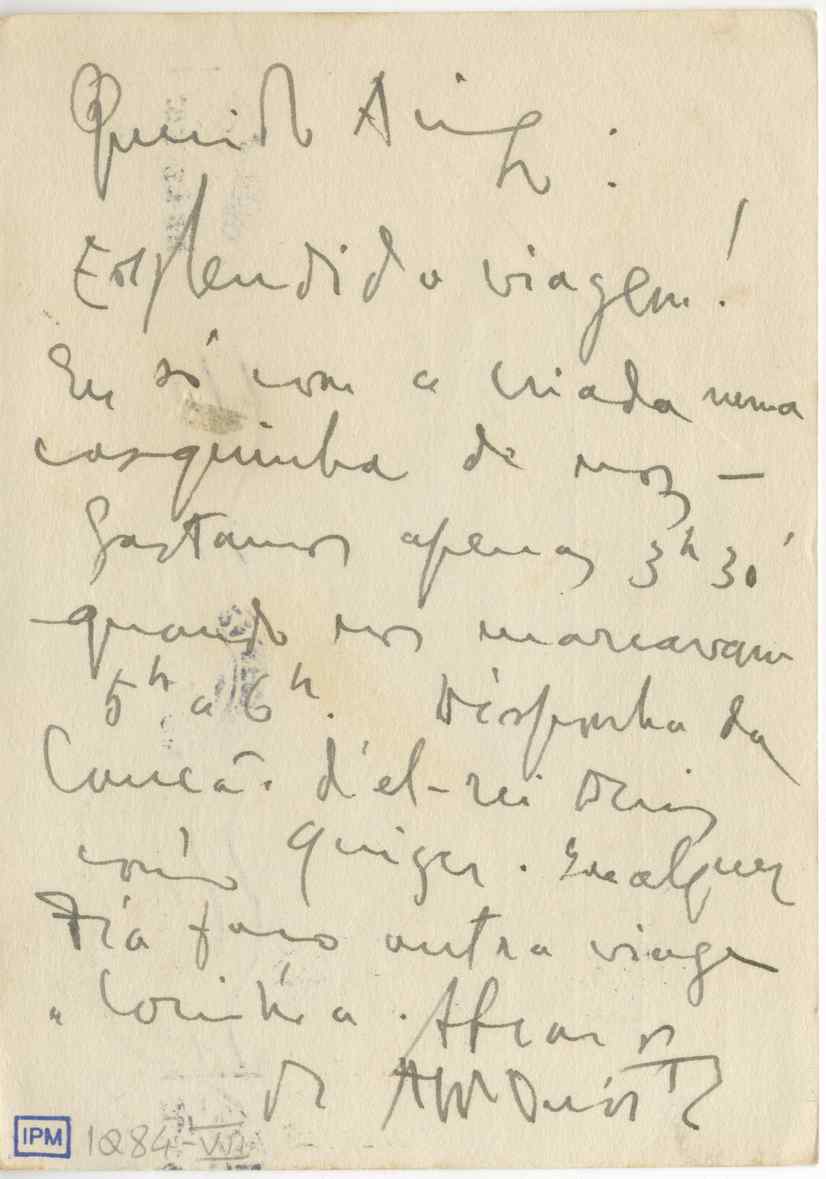 Querido Amigo:
Esplendida viagem!
Eu só com a criada numa
casquinha de noz —
Gastamos apenas 3h 30'
quando nos marcavam
5h a 6h. Disponha da
Canção d'el-rei Diniz
como quizer. Qualquer
dia faço outra viagem
a Coimbra. Abraços
de
IPM 1Q84-VII